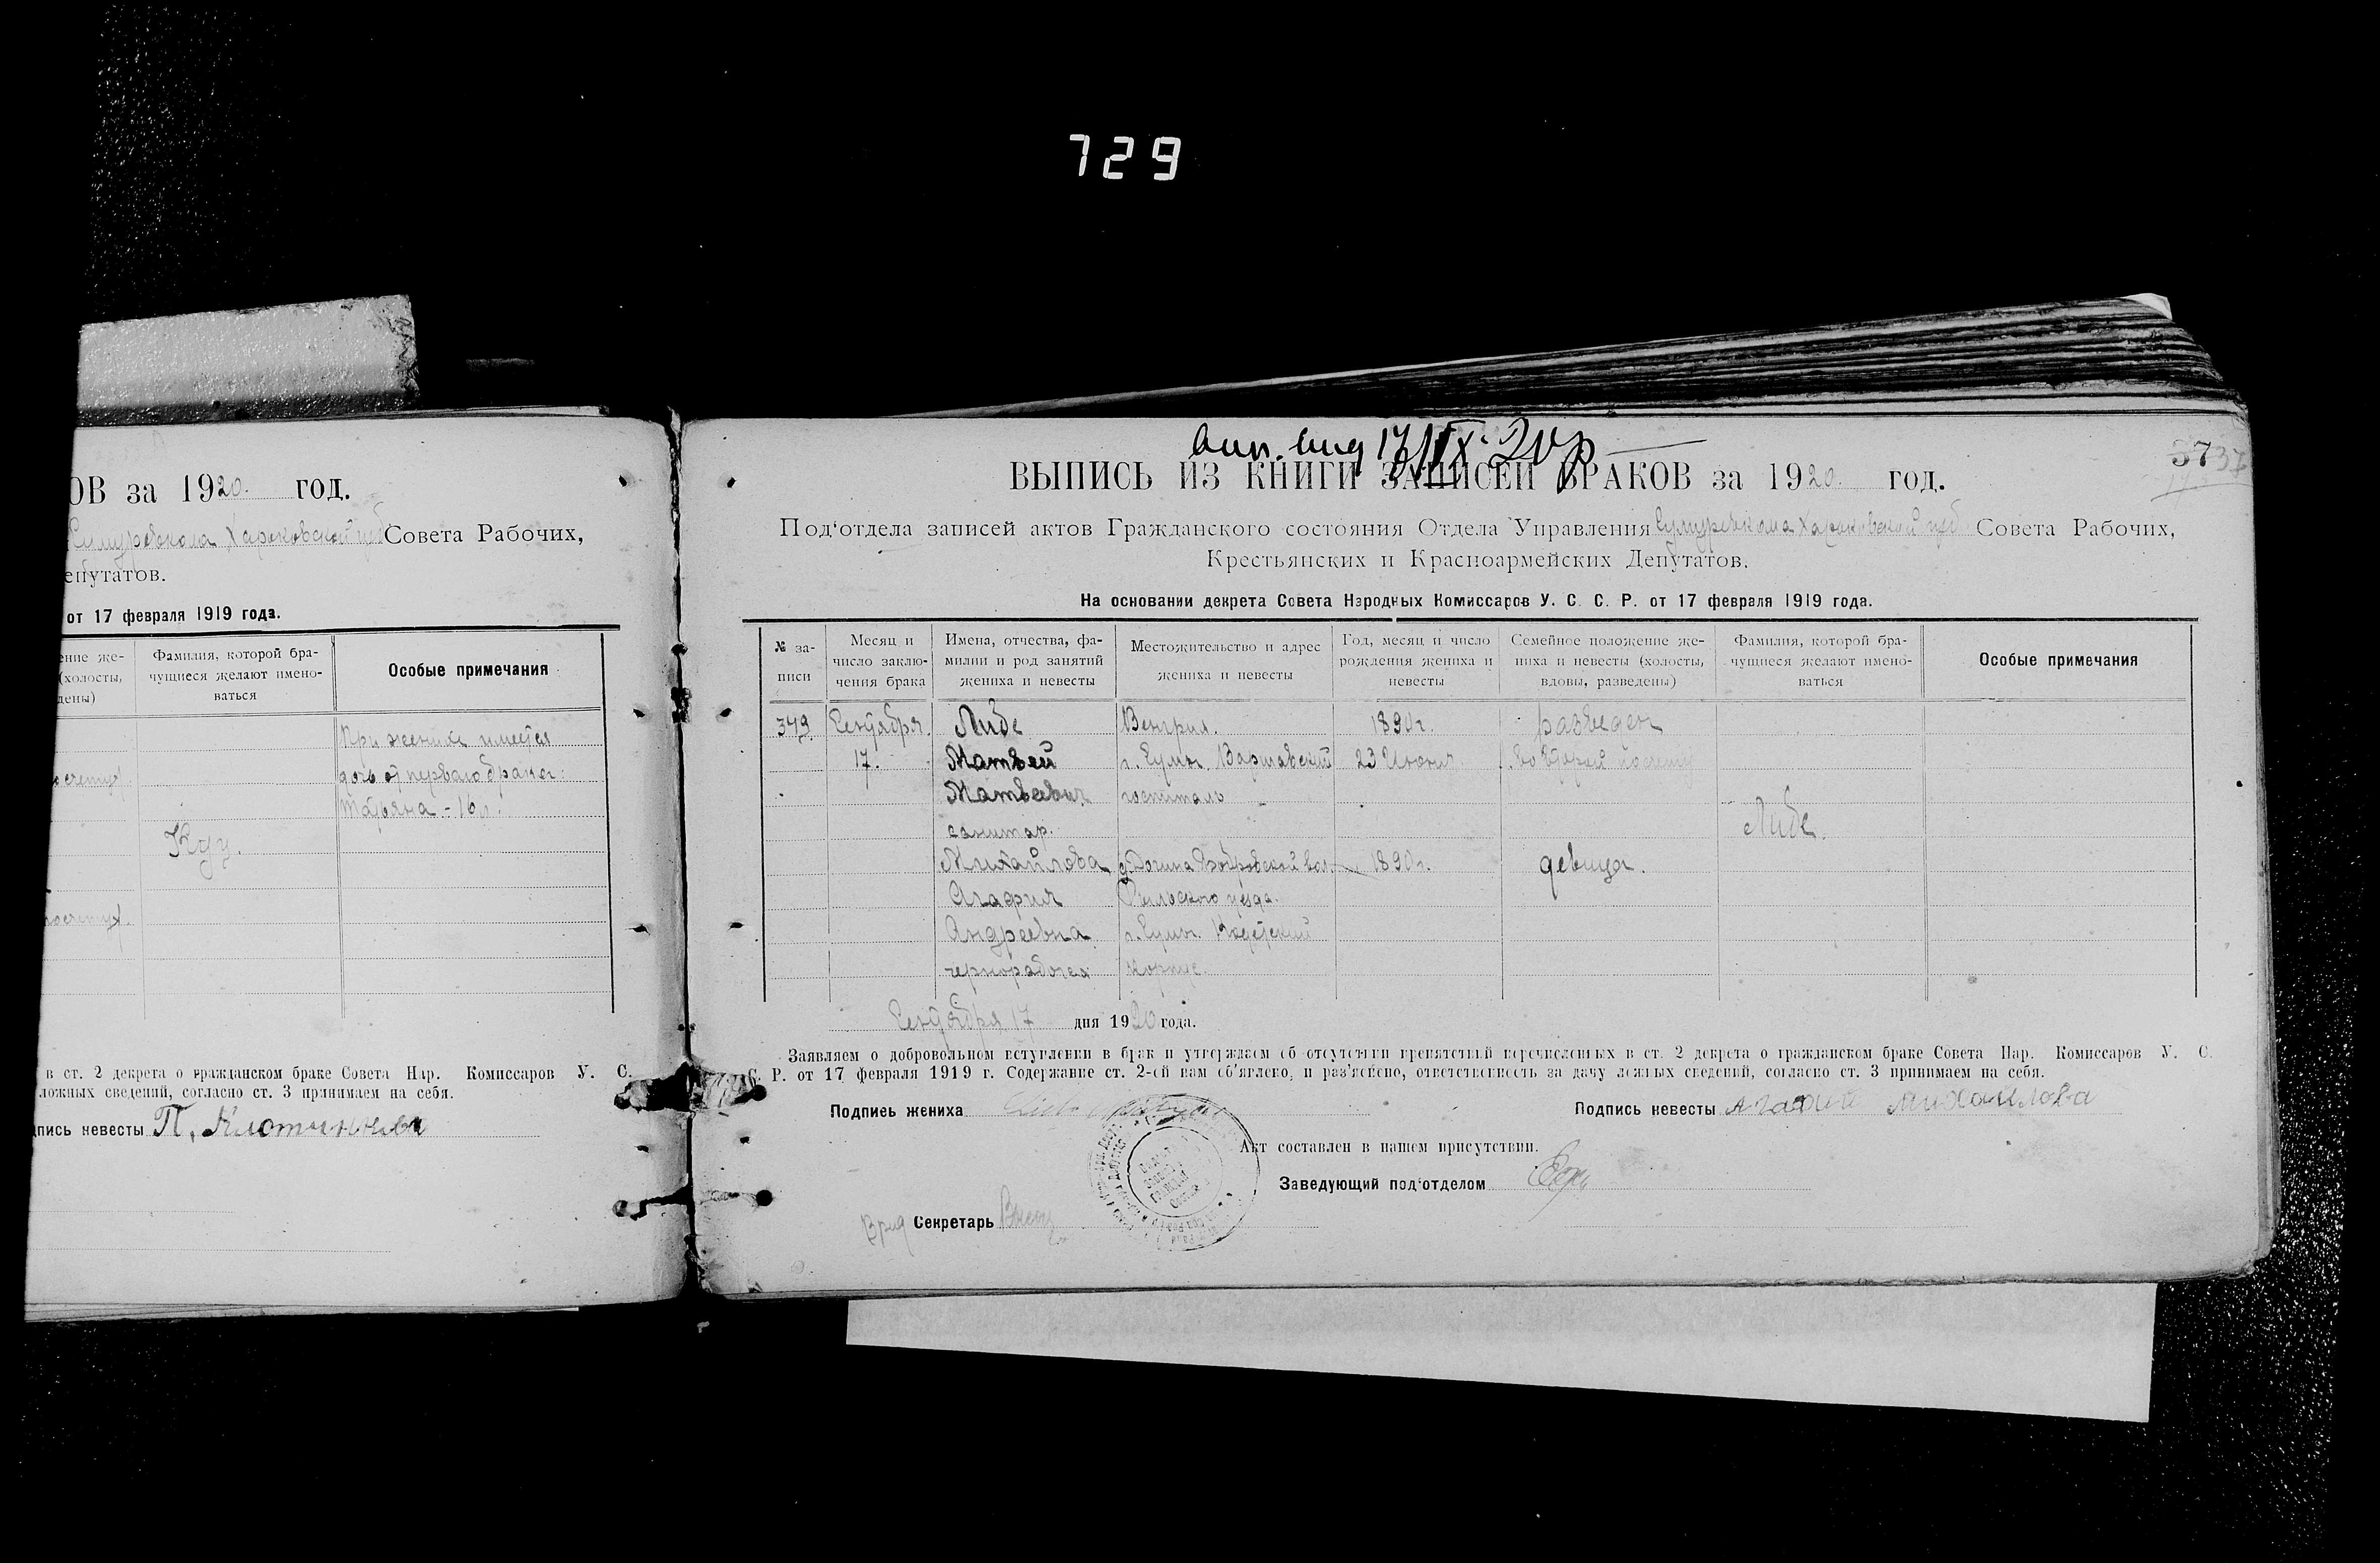 729
ОВ за 1920 год.
Совета Рабочих,
епутатов.
от 17 февраля 1919 года.
ение же-
(холосты,
дены)
Фамилия, которой бра-
чущиеся желают имено-
ваться
Особые примечания
При женихе имеется
дочь от первого брака:
Татьяна - 16 л.
Куц.
в ст. 2 декрета о гражданском браке Совета Нар. Комиссаров У. С.
ложных сведений, согласно ст. 3 принимаем на себя.
пись невесты П,
17/IX-20 р
37
37
ВЫПИСЬ ИЗ КНИГИ ЗАПИСЕЙ БРАКОВ за 1920 год.
Под‘отдела записей актов Гражданского состояния Отдела Управления Сумуревкома Харьковской губ Совета Рабочих,
Крестьянских и Красноармейских Депутатов.
На основании декрета Совета Народных Комиссаров У. С. С. Р. от 17 февраля 1919 года.
№ за-
писи
Месяц и
число заклю-
чения брака
Имена, отчества, фа-
милии и род занятий
жениха и невесты
Местожительство и адрес
жениха и невесты
Год, месяц и число
рождения жениха и
невесты
Семейное положение же-
ниха и невесты (холосты,
вдовы, разведены)
Фамилия, которой бра-
чущиеся желают имено-
ваться
Особые примечания
379 Сентября Либе Венгрия. 1890 г. разведен
17. Матвей г. Сумы. Варшавский 23 Июня во второй
Матвеевич госпиталь
санитар. Либе.
Михайлова 1890 г. девица.
Агафия Рыльского уезда.
Андреевна г. Сумы. Кадетский
чернорабочая корпус.
Сентября 17 дня 1920 года.
Заявляем о добровольном вступлении в брак и утверждаем об отсутствии препятствий перечисленных в ст. 2 декрета о гражданском браке Совета Нар. Комиссаров У. С.
С. Р. от 17 февраля 1919 г. Содержание ст. 2-ой нам об'явлено, и раз'яснено, ответственность за дачу ложных сведений, согласно ст. 3 принимаем на себя.
Подпись жениха
Подпись невесты Агафия Михайлова
Акт составлен в нашем присутствии.
Заведующий под‘отделом
Врид Секретарь